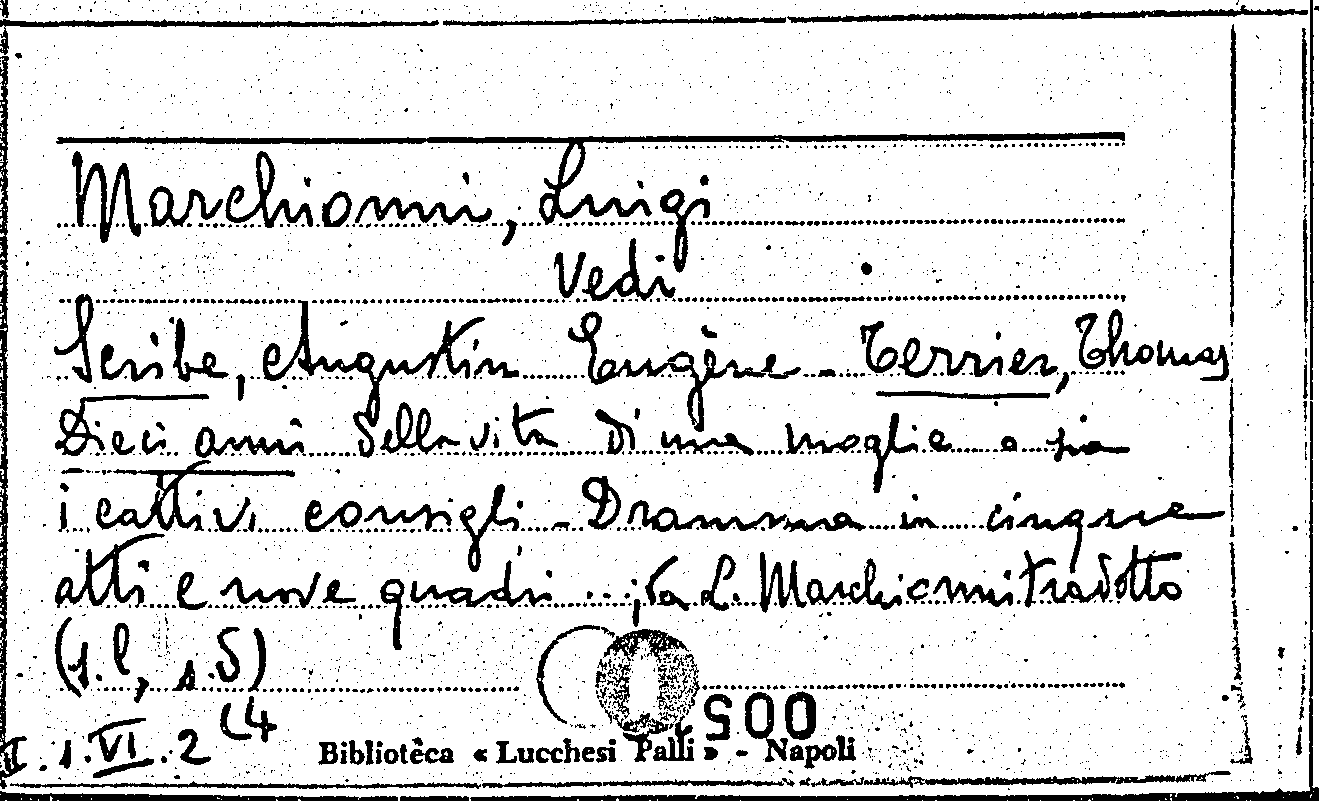 Marchionni, Luigi
Vedi
Scribe, Augustin Eugène - Terrier, Thomas
Dieci anni della vita di una moglie o sia
i cattivi consigli - Dramma in cinque
atti e nove quadri ...; da L. Marchionni tradotto
(s.l, s.d)
I.1.VI.2 (4
500
Biblioteca « Lucchesi Palli » - Napoli